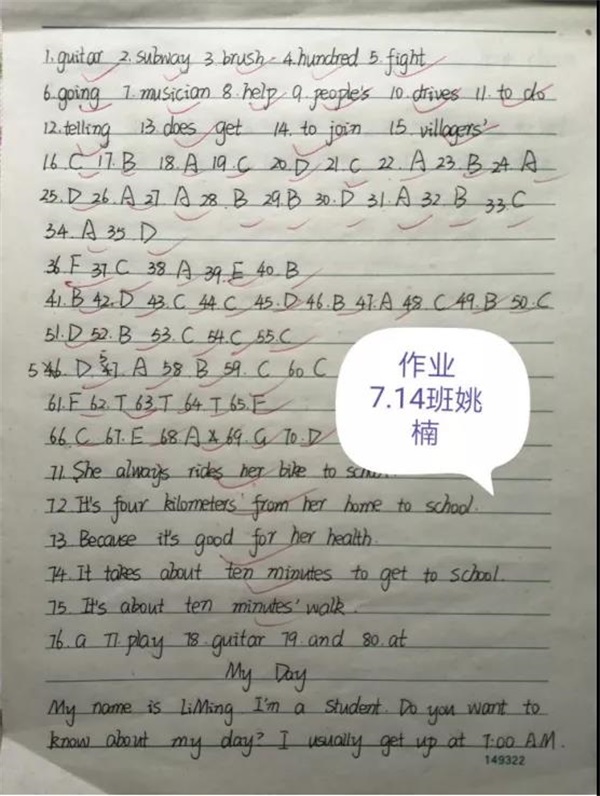 1.guitar 2.subway 3.brush 4.hundred 5.fight
6.going 7.musician 8.help 9.people's 10.drives 11.to do
12.telling 13.does get 14.to join 15.villagers'
16.C 17.B 18.A 19.C 20.D 21.C 22.A 23.B 24.A
25.D 26.A 27.A 28.B 29.B 30.D 31.A 32.B 33.C
34.A 35.D
36.F 37.C 38.A 39.E 40.B
41.B 42.D 43.C 44.C 45.D 46.B 47.A 48.C 49.B 50.C
51.D 52.B 53.C 54.C 55.C
56.D 57.A 58.B 59.C 60.C
61.F 62.T 63.T 64.T 65.F
66.C 67.E 68.A 69.G 70.D
71.She always rides her bike to
72.It's four kilometers' from her home to school.
73.Because it's good for her health.
74.It takes about ten minutes to get to school.
75.It's about ten minutes' walk.
76.a 77.play 78.guitar 79.and 80.at
My Day
My name is LiMing I'm a student. Do you want to
know about my day? I usually get up at 7:00 A.M.
149322
作业
7.14班姚
楠